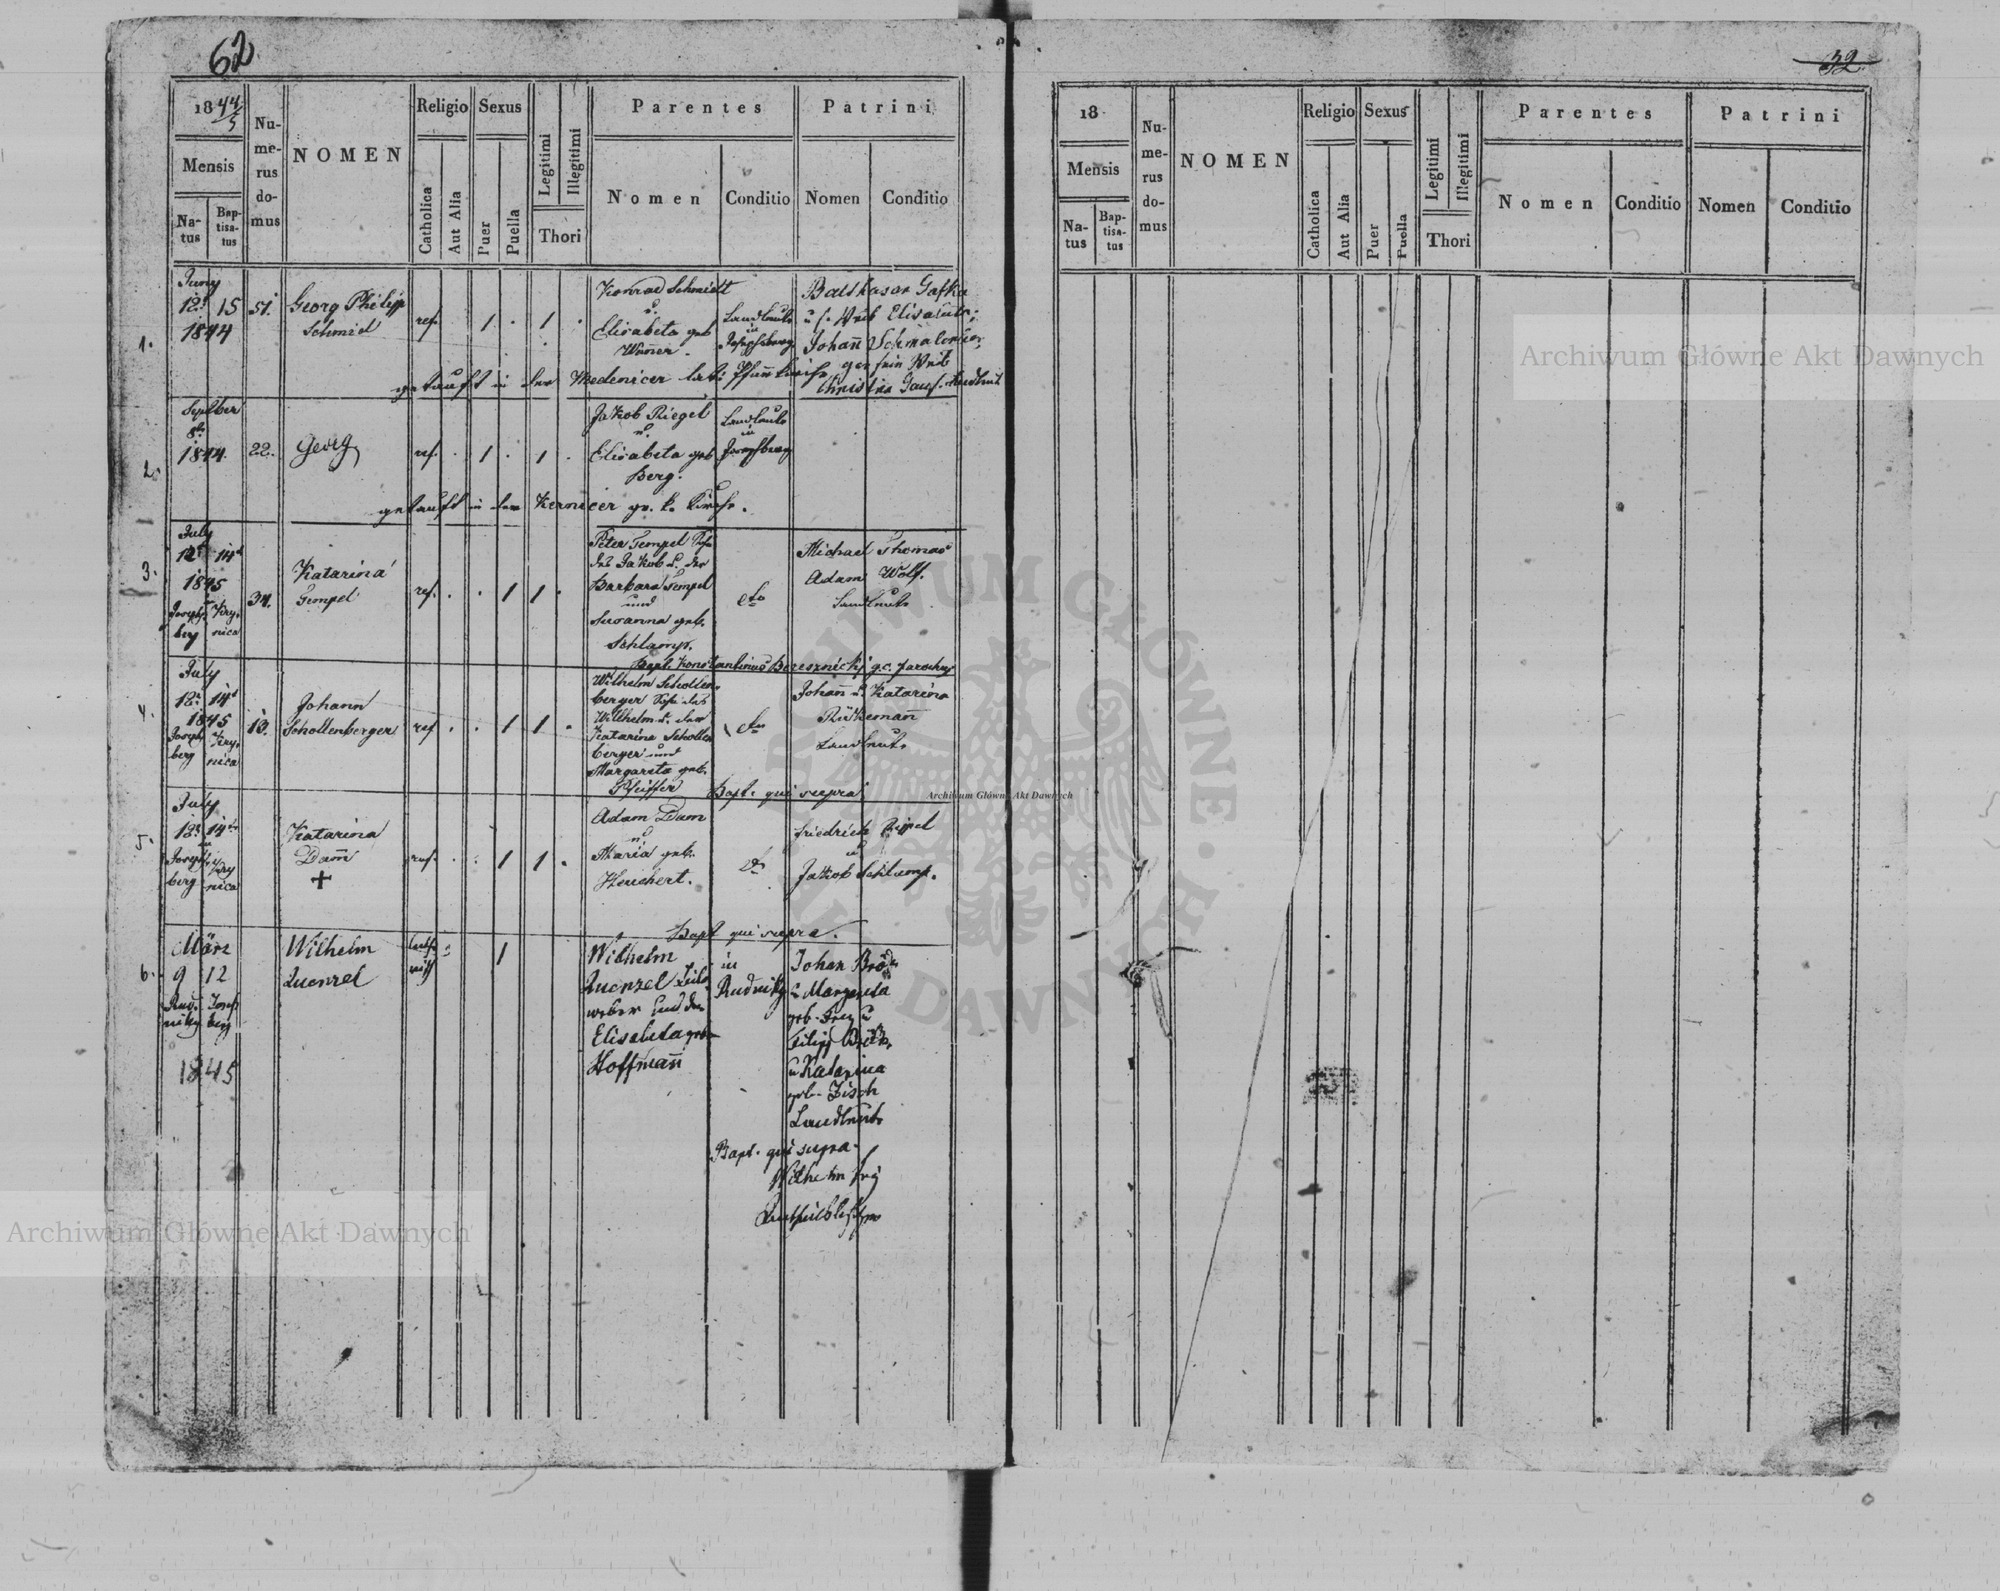 62
32
18 44/5
Mensis
Na-
tus
Bap-
tisa-
tus
Nu-
me-
rus
do-
mus
NOMEN
Religio
Catholica
Aut Alia
Sexus
Puer
Puella
Legitimi
Illegitimi
Thori
Parentes
Nomen
Conditio
Patrini
Nomen
Conditio
1.
Juny
12. 15
1844
51.
Georg Philipp
Schmid
ref.
1
1
Konrad Schmidt
u.
Elisabeta geb
Landleute
in
Josephsberg
Balthasar
u s. Weib Elisabeta
Johann
sein Weib
Christina
getauft in der Medenicer lat:
2.
September
8
1844.
22.
Georg
ref.
1
1
Jakob Riegel
u.
Elisabeta geb
Berg.
Landleute
in
Josephsberg
getauft in der Kernicer gr. k. Kirche.
3.
July
12 14
1845
Josephs-
berg
Kry-
nica
34.
Katarina
Tempel
ref.
1
1
Peter Tempel
des Jakob u. der
Barbara Tempel
und
Susanna geb.
Schlamp.
dto
Michael Thomas
Adam Wolf.
Landleute
Bapt. Konstantinus Beresznickj g.c. parochus
4.
July
12. 14
1845
Joseph
berg
Kry-
nica
13.
Johann
Schollenberger
ref
1
1
Wilhelm Schollen-
berger Sohn des
Wilhelm u. der
Katarina Schollen
berger und
Margareta geb.
Pfeiffer
dto
Johann u. Katarina
Rükemann
Landleute
Bapt. qui supra
5.
July
12. 14
Joseph
berg
Kry
nica
Katarina
Damm
ref.
1
1
Adam Dam
u
Maria geb.
Heuchert.
dto
Friedrich Rippel
u
Jakob Schlamp.
Bapt qui supra.
6.
März
9 12
Rud
niky
Josef
berg
1845
Wilhelm
Quenzel
1
Wilhelm
Quenzel
weber und der
Elisabeta geb
Hoffmann
in
Rudniky
Johan
u Margareta
geb.
Filipp
u Katarina
geb. Zisch
Landleute
Bapt. qui supra
Wilhelm
18
Mensis
Na-
tus
Bap-
tisa-
tus
Nu-
me-
rus
do-
mus
NOMEN
Religio
Catholica
Aut Alia
Sexus
Puer
Puella
Legitimi
Illegitimi
Thori
Parentes
Nomen
Conditio
Patrini
Nomen
Conditio
Archiwum Główne Akt Dawnych
Archiwum Główne Akt Dawnych
Archiwum Główne Akt Dawnych
ARCHIWUM GŁÓWNE · AKT DAWNYCH ·